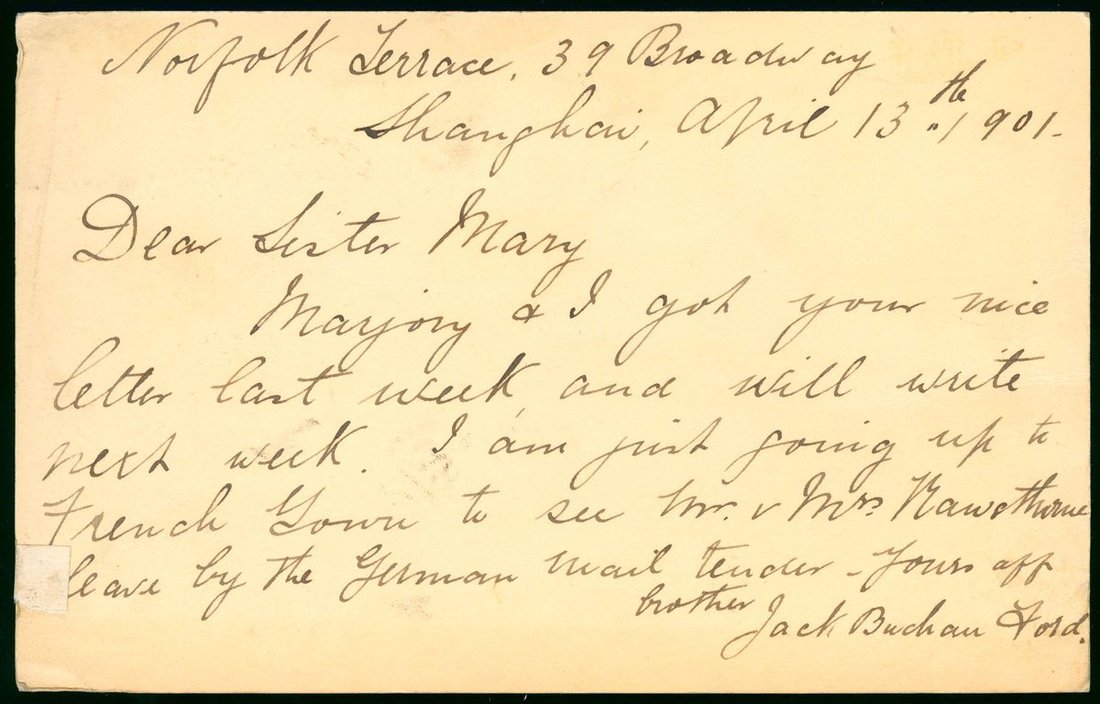 Norfolk Terrace, 39 Broadway
Shanghai, April 13th 1901.
Dear Sister Mary
Marjory & I got your nice
letter last week, and will write
next week. I am just going up to
French Town to see Mr. & Mrs Rawsthorne
leave by the German mail tender - Yours aff
brother Jack Buchan Ford.